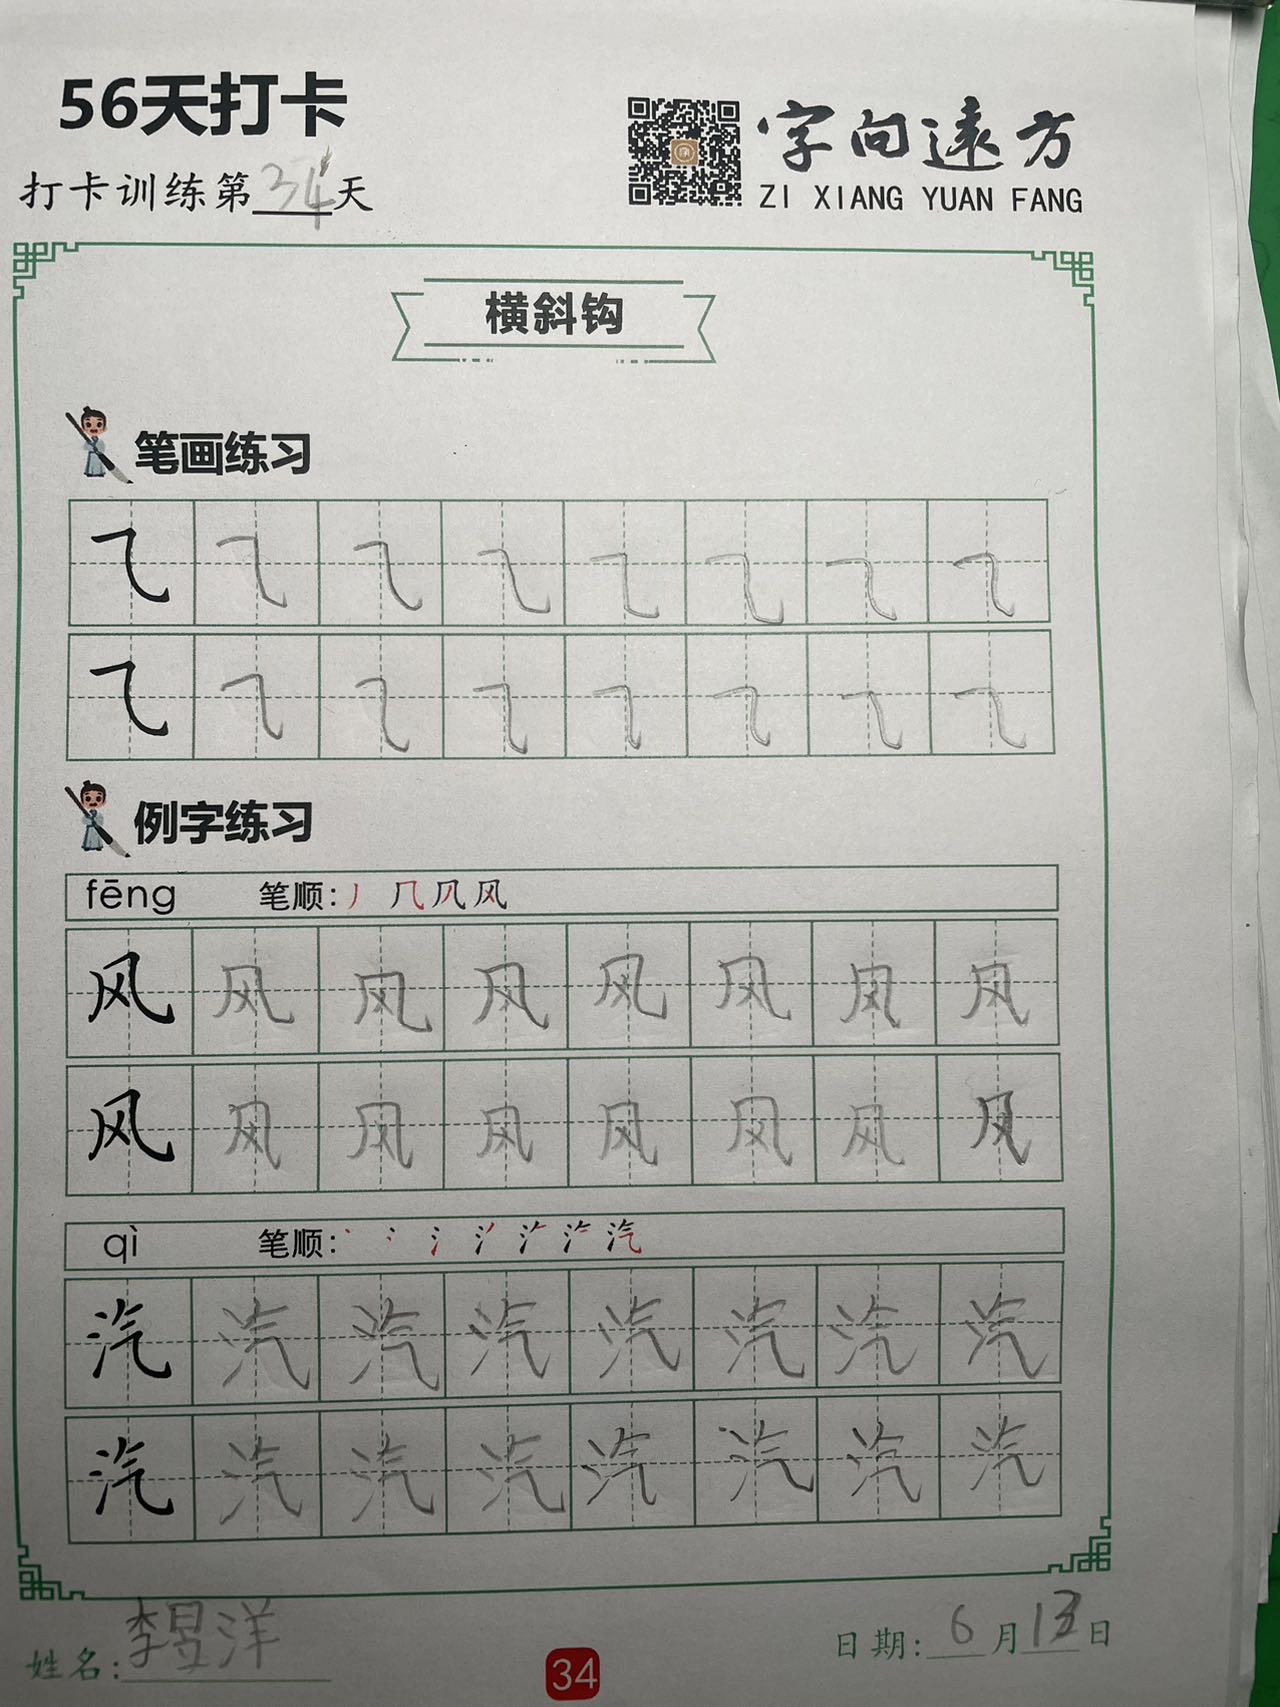 56天打卡
字向远方
ZI XIANG YUAN FANG
打卡训练第34天
横斜钩
笔画练习
⺄ ⺄ ⺄ ⺄ ⺄ ⺄ ⺄ ⺄
⺄ ⺄ ⺄ ⺄ ⺄ ⺄ ⺄ ⺄
例字练习
fēng 笔顺: 丿 几 凤 风
风 风 风 风 风 风 风 风
风 风 风 风 风 风 风 风
qì 笔顺:
汽 汽 汽 汽 汽 汽 汽 汽
汽 汽 汽 汽 汽 汽 汽 汽
姓名: 李昱洋
34
日期: 6月13日